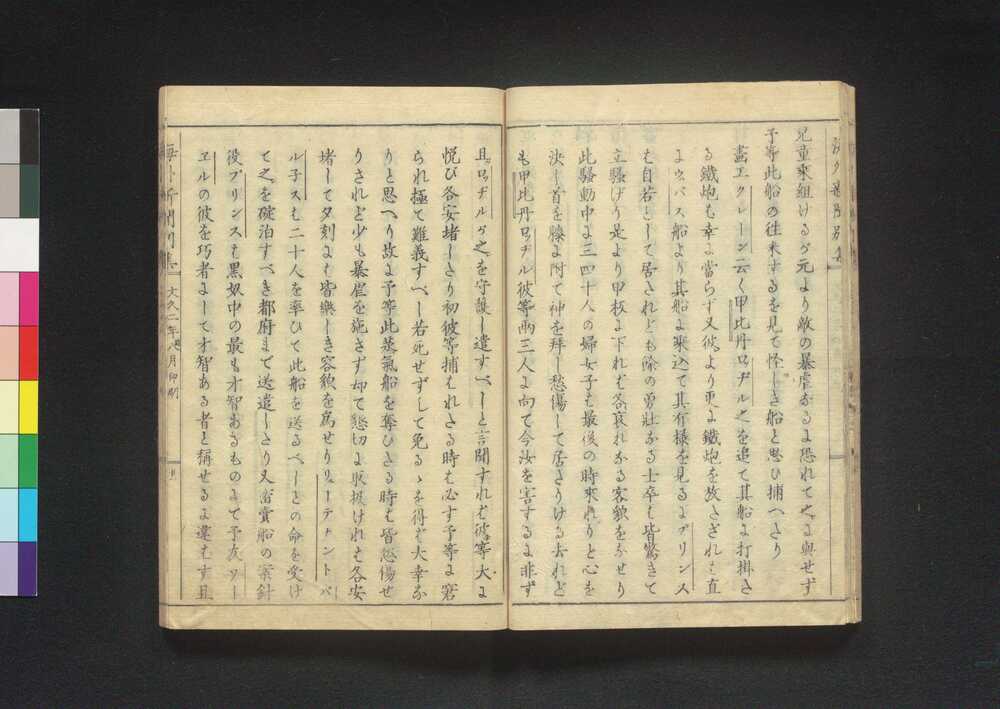 児童乗組けるが元より敵の暴虐なるよ恐れて之よ与せず
予等此船の往来するを見て怪しき船と思ひ捕へたり
畵工クレーン云く甲比丹ロヂル之を追て其船よ打掛さ
る鉄炮も幸よ当らず又彼より更よ鉄炮を放たざれも直
よウバス船より其船よ乗込て其有様を見るよプリンス
も自若として居されども余の勇壮なる士卒も皆驚きて
立騒げり是より甲板よ下れむ各哀れなる容貌をなせり
此騒動中よ三四十人の婦女子も最後の時来れりと心を
決し首を膝よ附て神を拝し愁傷して居さりける去れど
も甲比丹ロヂル彼等両三人よ向て今汝を害するよ非ず
且ロヂルが之を守護し遣すべしと言聞すれむ彼等大よ
悦び各安堵しさり初彼等捕もれさる時も必す予等よ窘
られ極て難義すべし若死せずして免るゝを得む大幸な
りと思へり故よ予等此蒸気船を奪ひさる時も皆愁傷せ
りされど少も暴虐を施さず却て懇切よ取扱けれも各安
堵して夕刻よも皆楽しき容貌を為せりリューテナントバ
ル子スも二十人を率ひて此船を送るべしとの命を受け
て之を碇泊すべき都府まで送遣しさり又畜賞船の案針
役プリンスも黒奴中の最も才智あるものよて予友ソー
ヱルの彼を巧者よして才智ある者と称せるよ違もす且
文久二年八月印刷